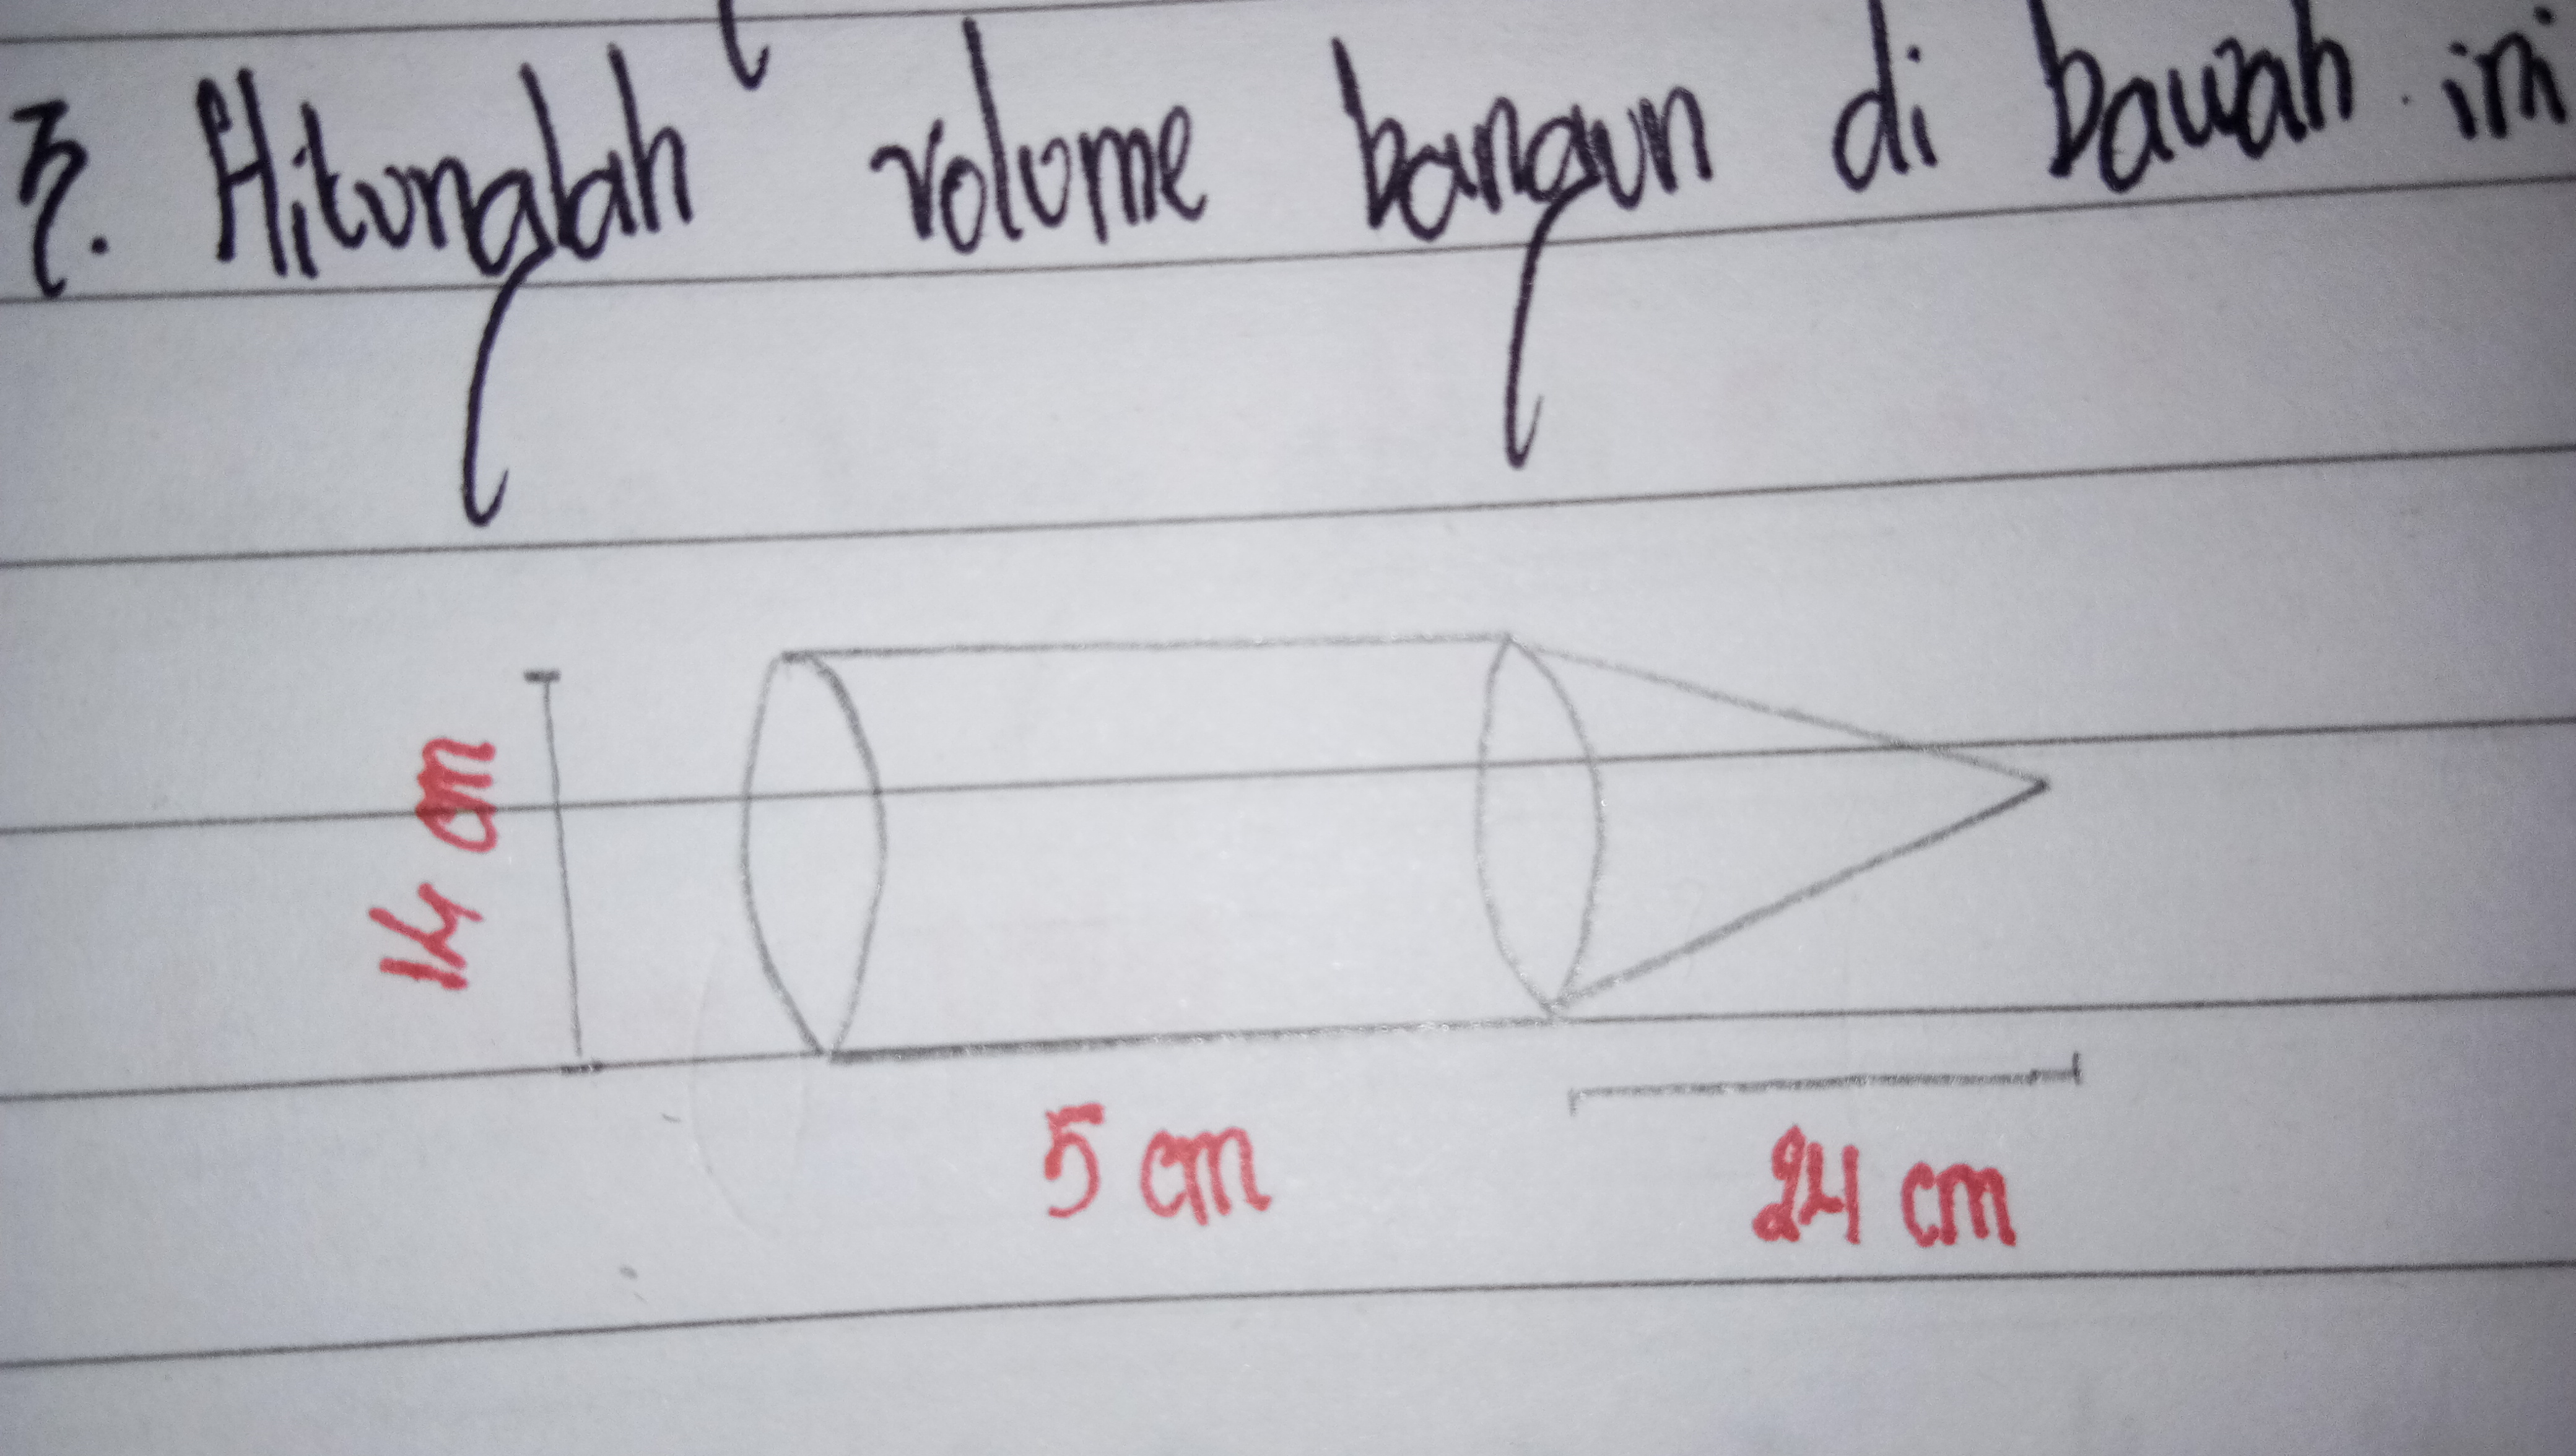 7. Hitunglah volume bangun di bawah ini
14 cm
5 cm
24 cm